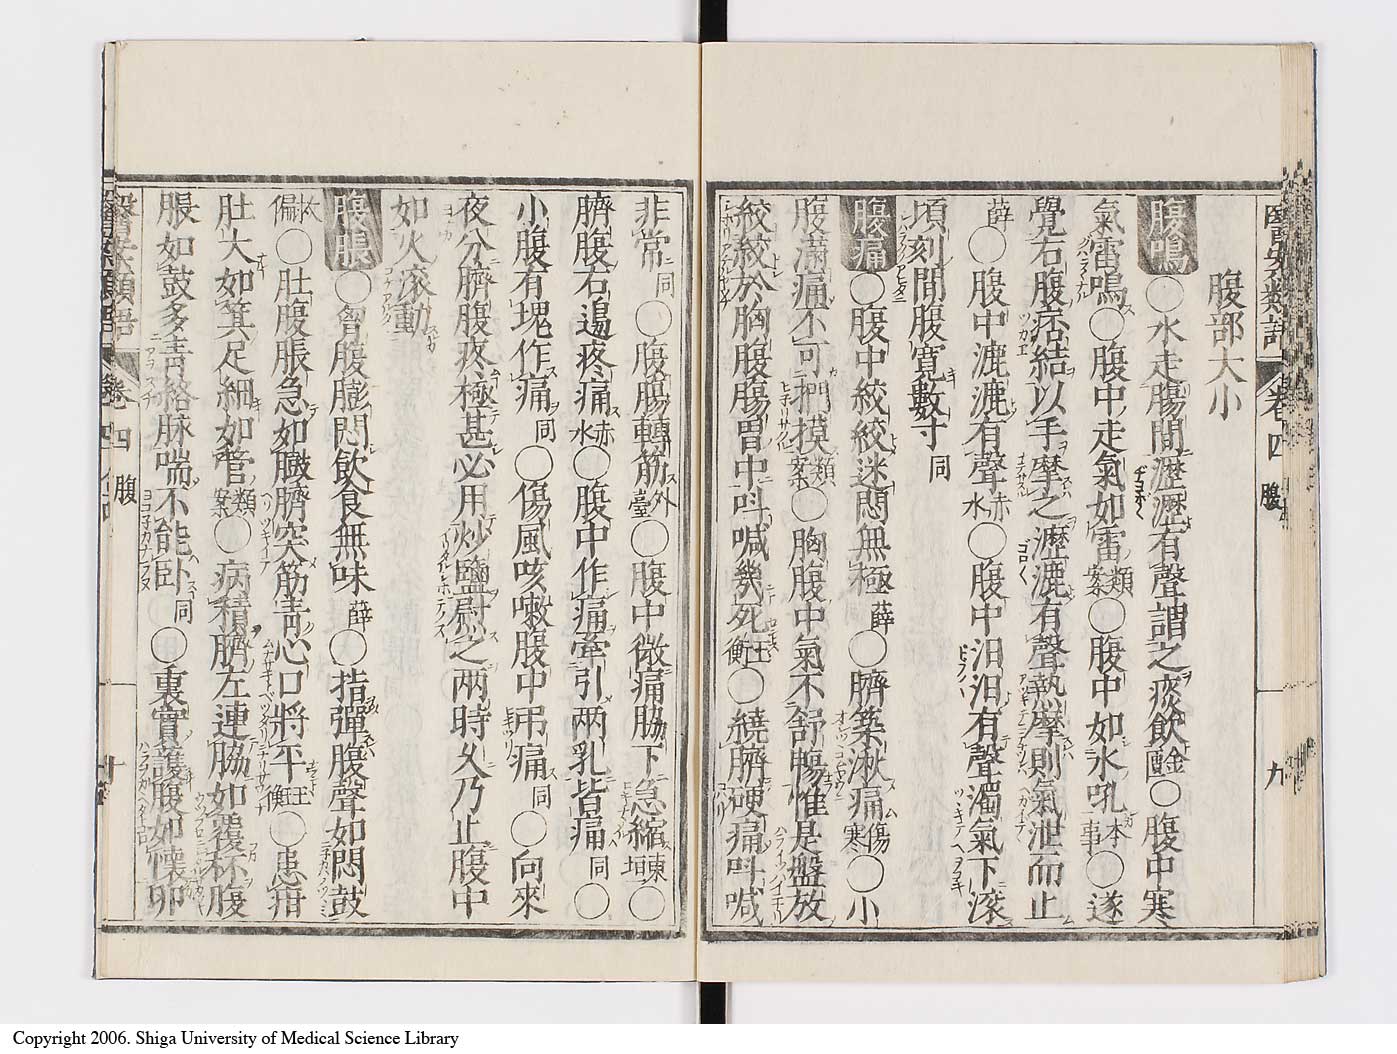 醫案類語 卷四 腹 九
腹部大小
腹鳴 ○水走腸間瀝瀝有聲謂之痰飲醫金○腹中寒
氣雷鳴○腹中走氣如雷類案○腹中如水吼本事○遂
覺右腹痞結以手摩之瀝漉有聲熱摩則氣泄而止
薛○腹中漉漉有聲赤水○腹中汨汨有聲濁氣下滚
頃刻間腹寬數寸同
腹痛 ○腹中絞絞迷悶無極薛○臍築湫痛傷寒○小
腹滿痛不可捫摸類案○胸腹中氣不舒暢惟是盤放
絞絞於胸腹腸胃中呌喊幾死王衡○繞臍硬痛呌喊
非常同○腹腸轉筋外臺○腹中微痛脇下急縮東垣○
臍腹右邊疼痛赤水○腹中作痛牽引兩乳皆痛同○
小腹有塊作痛同○傷風咳嗽腹中吊痛同○向來
夜分臍腹疼極甚必用炒鹽熨之兩時久乃止腹中
如火滚動
腹脹 ○胷腹膨悶飲食無味薛○指彈腹聲如悶鼓
太倫○肚腹脹急如臌臍突筋青心口將平王衡○患疳
肚大如箕足細如管類案○病積臍左連脇如覆杯腹
脹如鼓多青絡脉喘不能卧同○裏實護腹如懷卵
醫案類語 卷四 腹 十
Copyright 2006. Shiga University of Medical Science Library